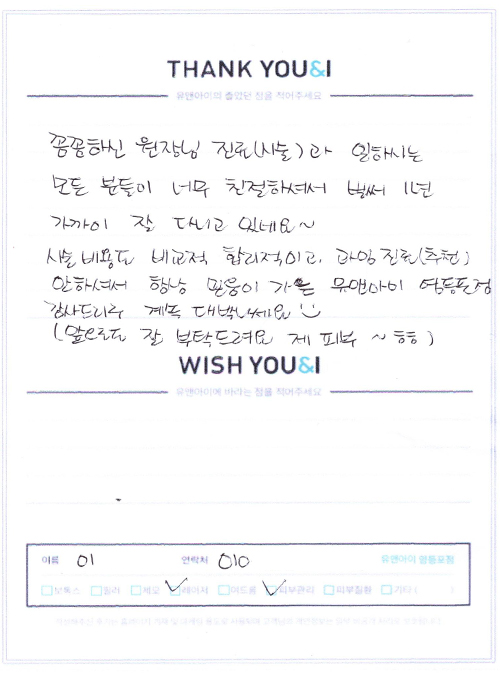 THANK YOU&I
유앤아이의 좋았던 점을 적어주세요
꼼꼼하신 원장님 진료(시술)과 일하시는
모든 분들이 너무 친절하셔서 벌써 1년
가까이 잘 다니고 있네요~
시술비용도 비교적 합리적이고, 과잉진료(추천)
안하셔서 항상 믿음이 가는 유앤아이 영등포점
감사드리구 계속 대박나세요
(앞으로도 잘 부탁드려요 제 피부 ~ ㅎㅎ)
WISH YOU&I
유앤아이에 바라는 점을 적어주세요
이름 이 연락처 010 유앤아이 영등포점
보톡스 필러 제모 레이저 여드름 피부관리 피부질환 기타 ( )